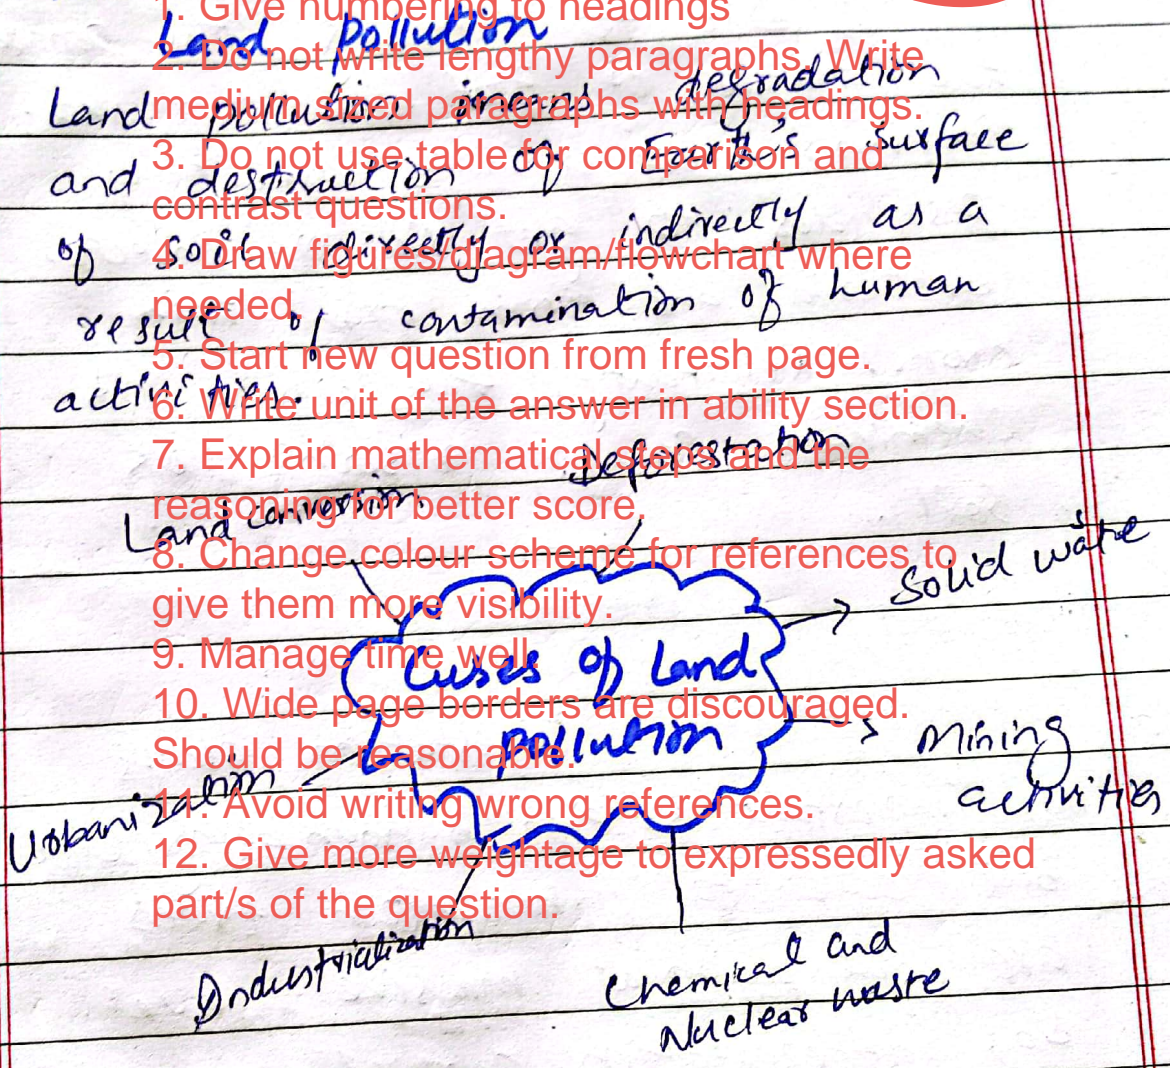 1. Give numbering to headings
Land pollution
2. Do not write lengthy paragraphs. Write
medium sized paragraphs with headings.
3. Do not use table for comparison and
contrast questions.
4. Draw figures/diagram/flowchart where
needed.
5. Start new question from fresh page.
6. Write unit of the answer in ability section.
7. Explain mathematical steps and the
reasoning for better score.
8. Change colour scheme for references to
give them more visibility.
9. Manage time well.
10. Wide page borders are discouraged.
Should be reasonable.
11. Avoid writing wrong references.
12. Give more weightage to expressedly asked
part/s of the question.
Land pollution means degradation
and destruction of Earth's surface
of soil directly or indirectly as a
result of contamination of human
activities.
Deforestation
Land conversion
Solid waste
Cuses of Land
pollution
Mining
activities
Urbanization
Industrialization
Chemical and
Nuclear waste